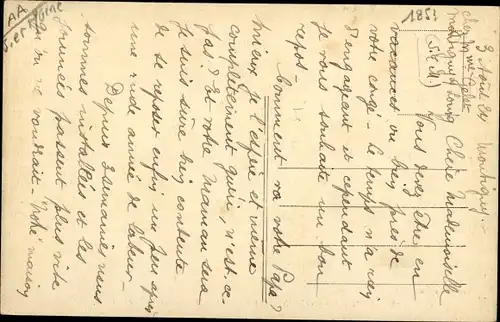 AA
S. et Marne
1857
(S. et M.)
3 Août 24 Montigny.
chez Mme Pelet
Montigny s/ Loing
Chère Mademoiselle
Vous devez être en
vacances ou bien près de
votre congé – Le temps n'a rien
d'engageant et cependant
je vous souhaite un bon
repos –
Comment va votre Papa?
mieux je l'espère et même
complètement guéri, n'est-ce-
pas? Et votre Maman sera
je suis sûre bien contente
de se reposer enfin un peu après
une rude année de labeur –
Depuis 2 semaines nous
sommes installés et les
journées passent plus vite
qu'on ne voudrait. "Notre" maison